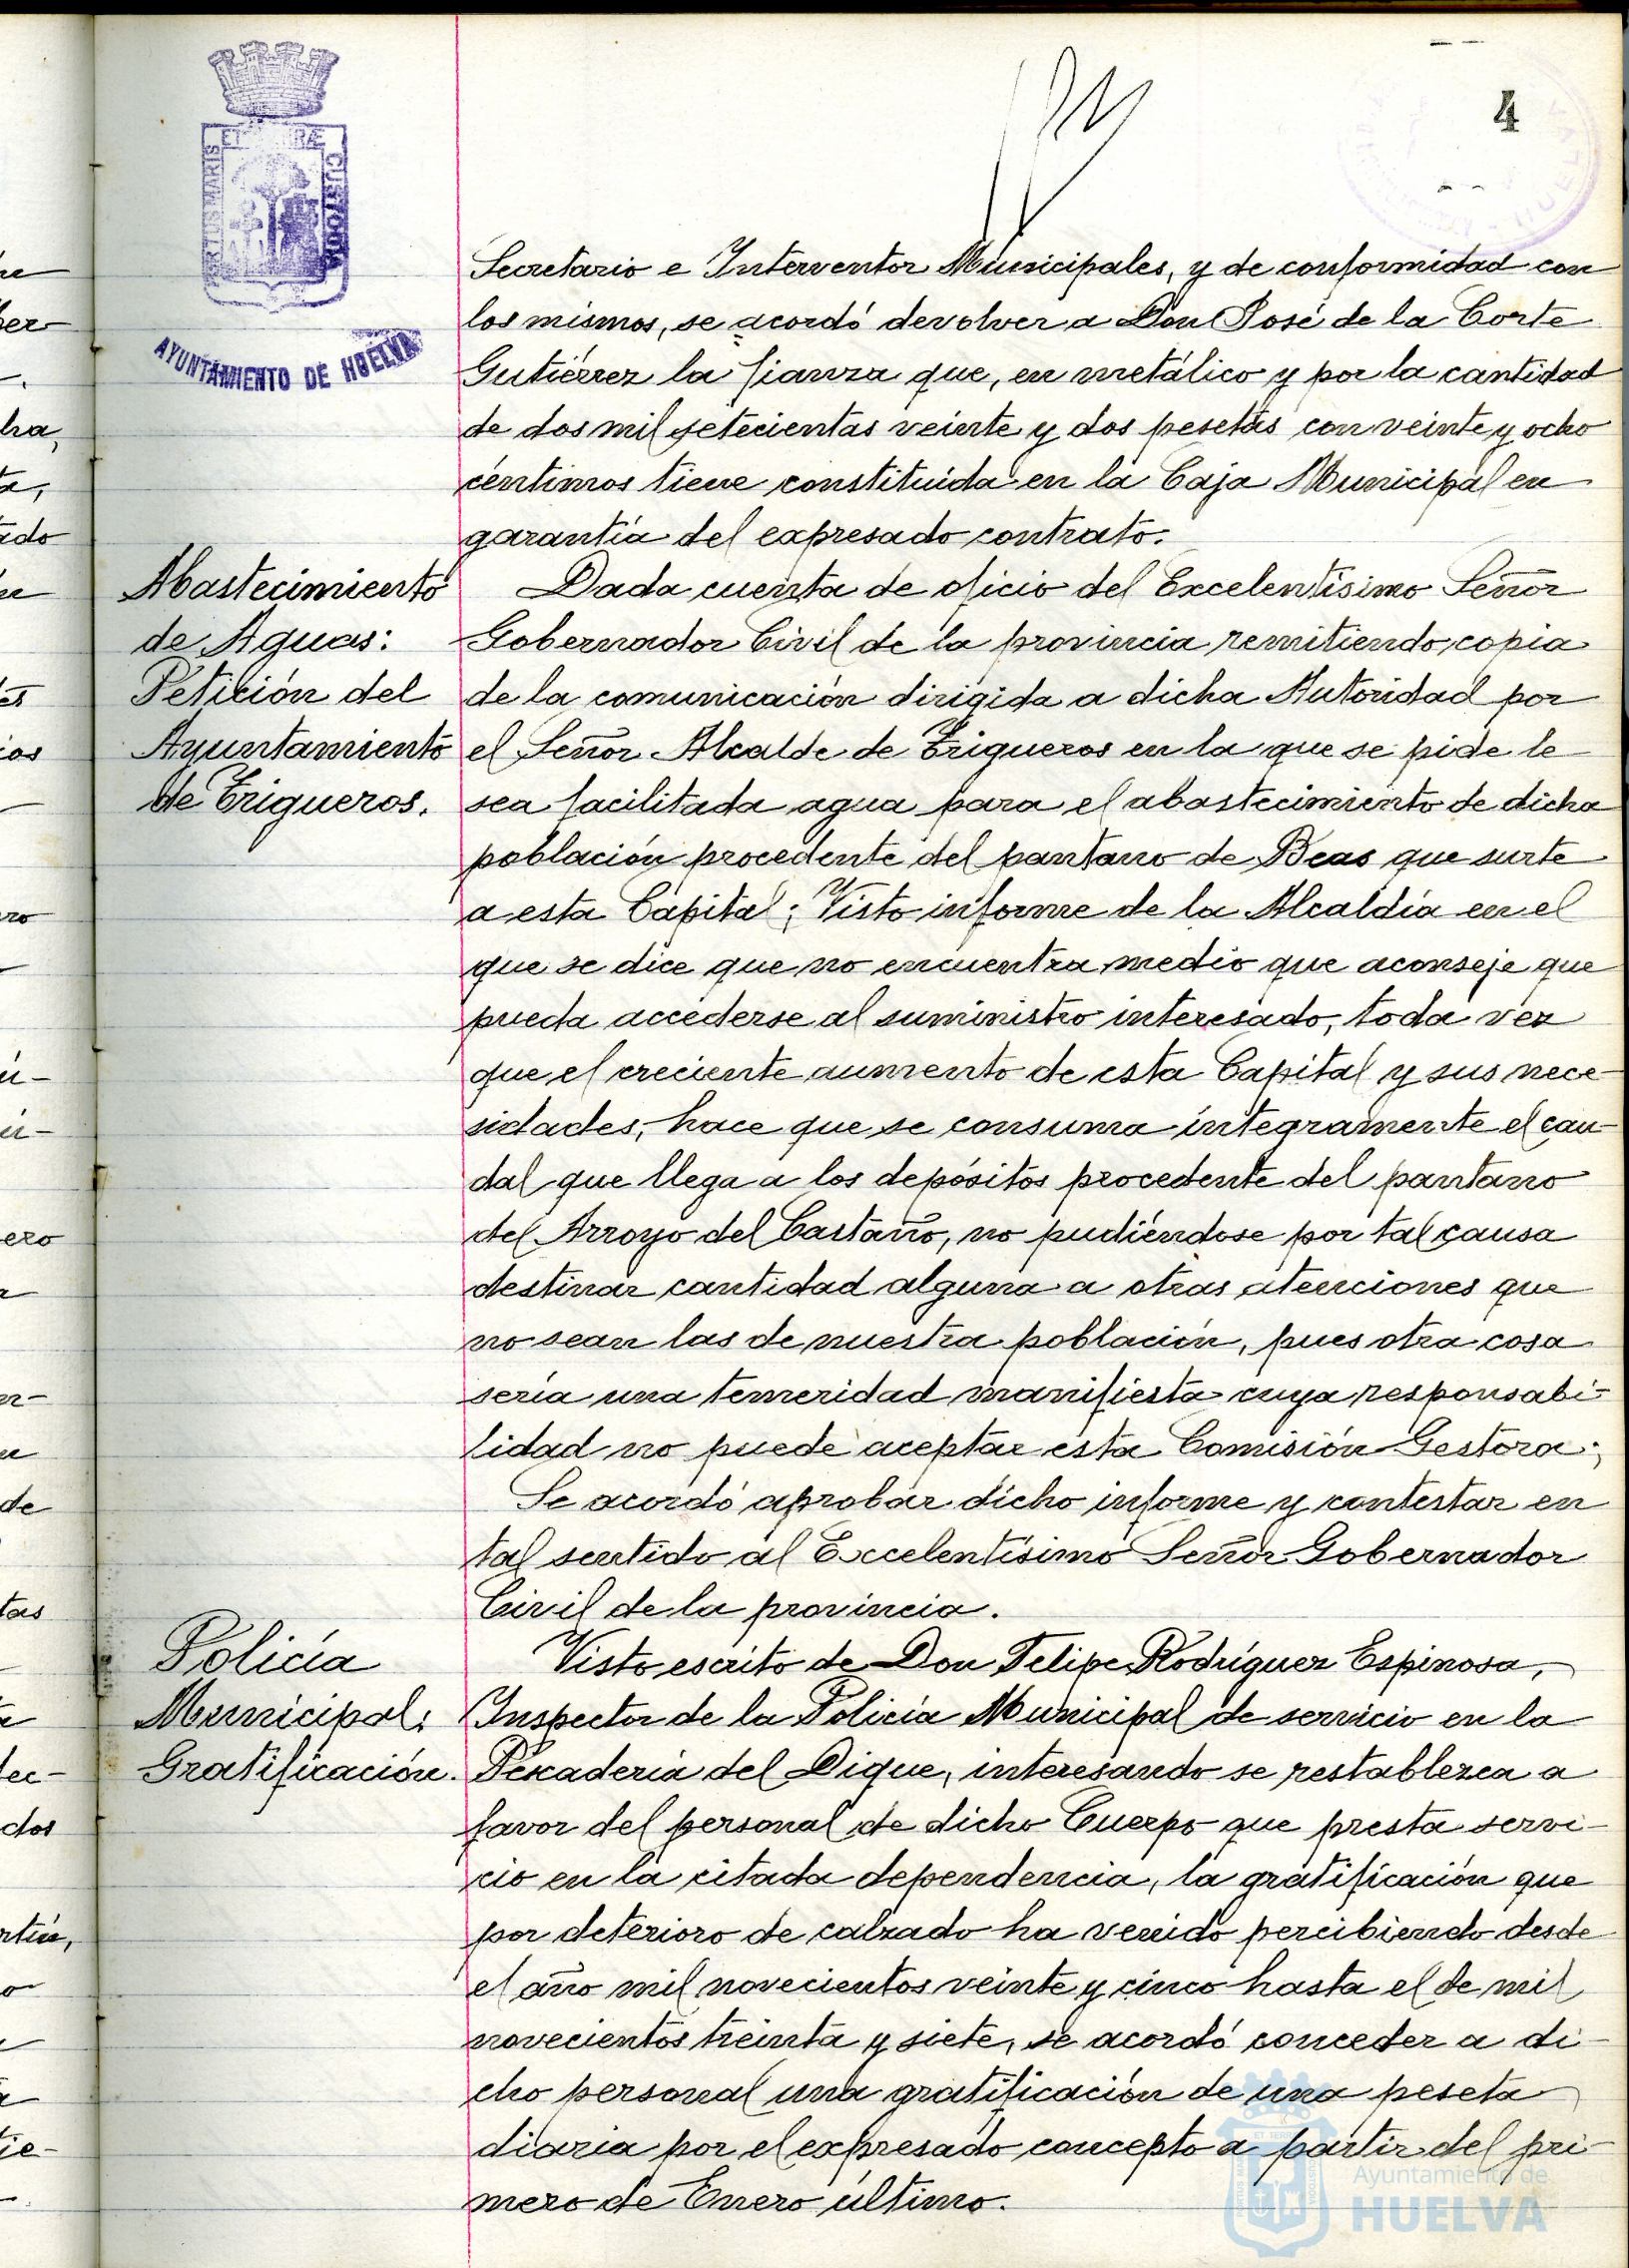 4
PORTUS MARIS ET TERRÆ CUSTODIA
AYUNTAMIENTO DE HUELVA
Secretario e Interventor Municipales, y de conformidad con
los mismos, se acordó devolver a Don José de la Corte
Gutiérrez la fianza que, en metálico y por la cantidad
de dos mil setecientas veinte y dos pesetas con veinte y ocho
céntimos tiene constituída en la Caja Municipal en
garantía del expresado contrato.
Abastecimiento
de Aguas:
Petición del
Ayuntamiento
de Trigueros.
Dada cuenta de oficio del Excelentísimo Señor
Gobernador Civil de la provincia remitiendo copia
de la comunicación dirigida a dicha Autoridad por
el Señor Alcalde de Trigueros en la que se pide le
sea facilitada agua para el abastecimiento de dicha
población procedente del pantano de Beas que surte
a esta Capital; Visto informe de la Alcaldía en el
que se dice que no encuentra medio que aconseje que
pueda accederse al suministro interesado, toda vez
que el creciente aumento de esta Capital y sus nece-
sidades, hace que se consuma íntegramente el cau-
dal que llega a los depósitos procedente del pantano
del Arroyo del Castaño, no pudiéndose por tal causa
destinar cantidad alguna a otras atenciones que
no sean las de nuestra población, pues otra cosa
sería una temeridad manifiesta cuya responsabi-
lidad no puede aceptar esta Comisión Gestora;
Se acordó aprobar dicho informe y contestar en
tal sentido al Excelentísimo Señor Gobernador
Civil de la provincia.
Policía
Municipal:
Gratificación.
Visto escrito de Don Felipe Rodríguez Espinosa,
Inspector de la Policía Municipal de servicio en la
Pescadería del Dique, interesando se restablezca a
favor del personal de dicho Cuerpo que presta servi-
cio en la citada dependencia, la gratificación que
por deterioro de calzado ha venido percibiendo desde
el año mil novecientos veinte y cinco hasta el de mil
novecientos treinta y siete, se acordó conceder a di-
cho personal una gratificación de una peseta
diaria por el expresado concepto a partir del pri-
mero de Enero último.
Ayuntamiento de
HUELVA